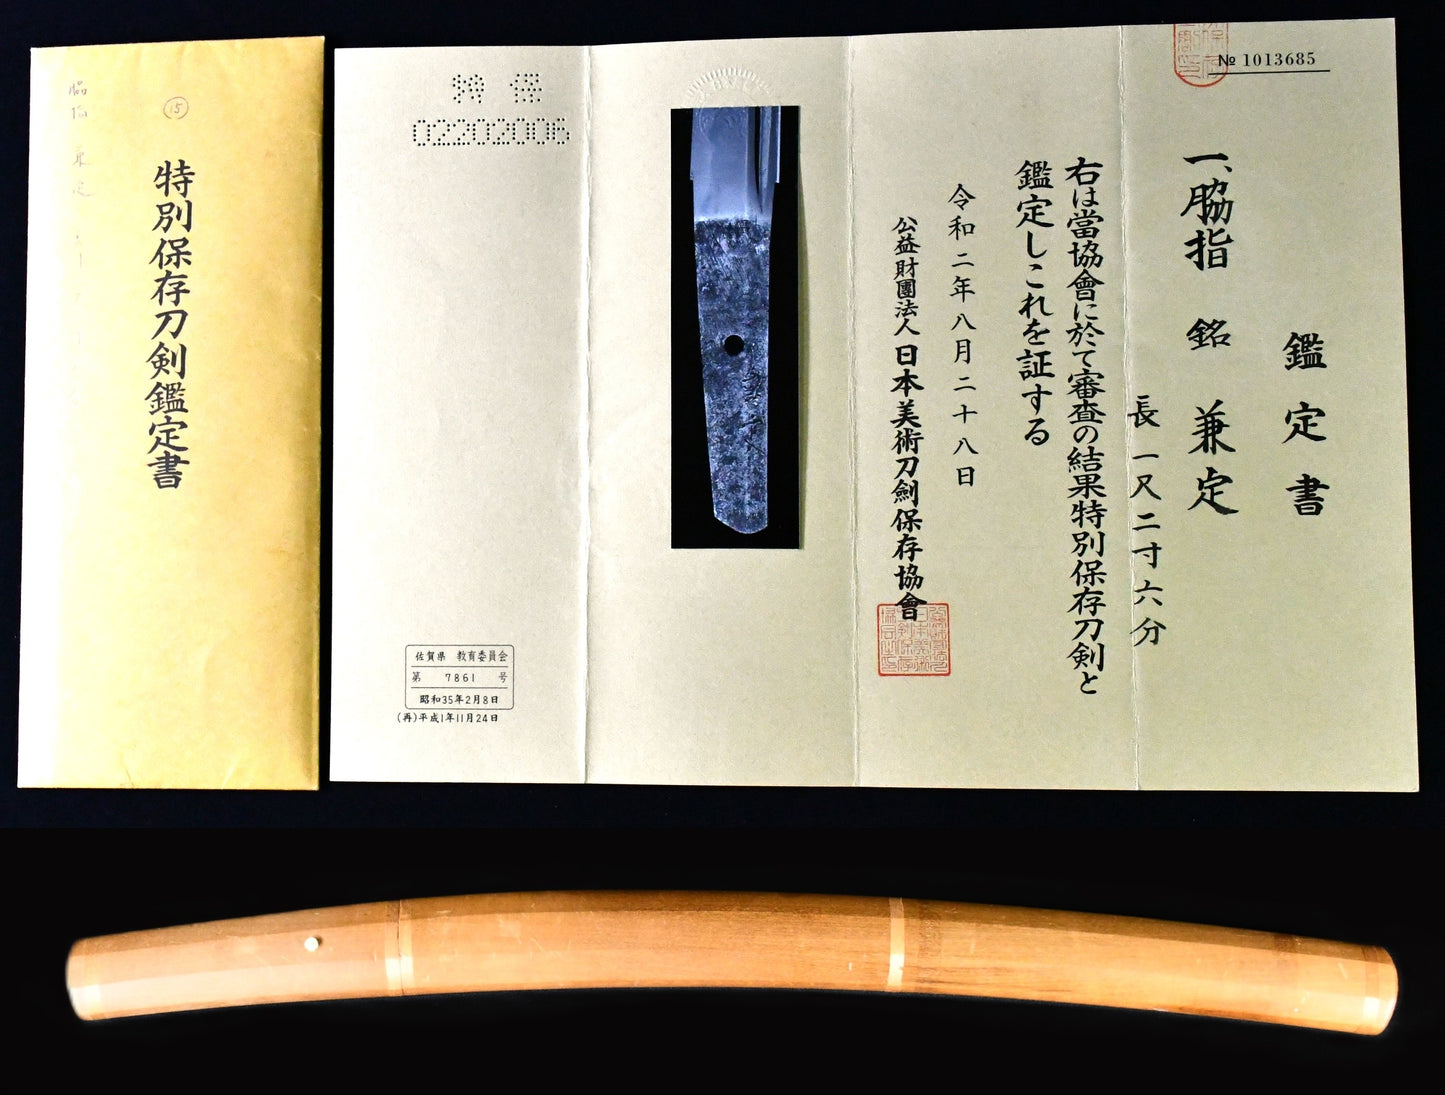 ⑮
特別保存刀剣鑑定書
№ 1013685
鑑定書
一、脇指 銘 兼定
長一尺二寸六分
右は當協會に於て審査の結果特別保存刀剣と
鑑定しこれを証する
令和二年八月二十八日
公益財團法人日本美術刀劍保存協會
特保
02202006
佐賀県 教育委員会
第 7861 号
昭和35年2月8日
(再)平成1年11月24日